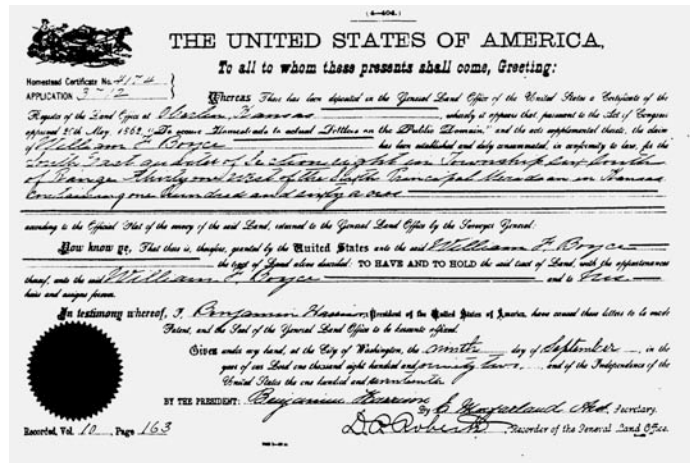 (4-404.)
THE UNITED STATES OF AMERICA,
To all to whom these presents shall come, Greeting:
Homestead Certificate No. 4174
APPLICATION 3712
Whereas There has been deposited in the General Land Office of the United States a Certificate of the
Register of the Land Office at Oberlin, Kansas, whereby it appears that, pursuant to the Act of Congress
approved 20th May, 1862, "To secure Homesteads to actual Settlers on the Public Domain," and the acts supplemental thereto, the claim
of William F. Boyce has been established and duly consummated, in conformity to law, for the
South East quarter of Section eight in Township six South
of Range thirty one West of the Sixth Principal Meridian in Kansas
containing one hundred and sixty acres
according to the Official Plat of the survey of the said Land, returned to the General Land Office by the Surveyor General:
Now know ye, That there is, therefore, granted by the United States unto the said William F. Boyce
the tract of Land above described: TO HAVE AND TO HOLD the said tract of Land, with the appurtenances
thereof, unto the said William F. Boyce and to his
heirs and assigns forever.
In testimony whereof, I, Benjamin Harrison, President of the United States of America, have caused these letters to be made
Patent, and the Seal of the General Land Office to be hereunto affixed.
Given under my hand, at the City of Washington, the ninth day of September, in the
year of our Lord one thousand eight hundred and ninety two, and of the Independence of the
United States the one hundred and seventeenth
BY THE PRESIDENT: Benjamin Harrison
By Secretary.
D. P. Roberts, Recorder of the General Land Office.
Recorded, Vol. 10, Page 163